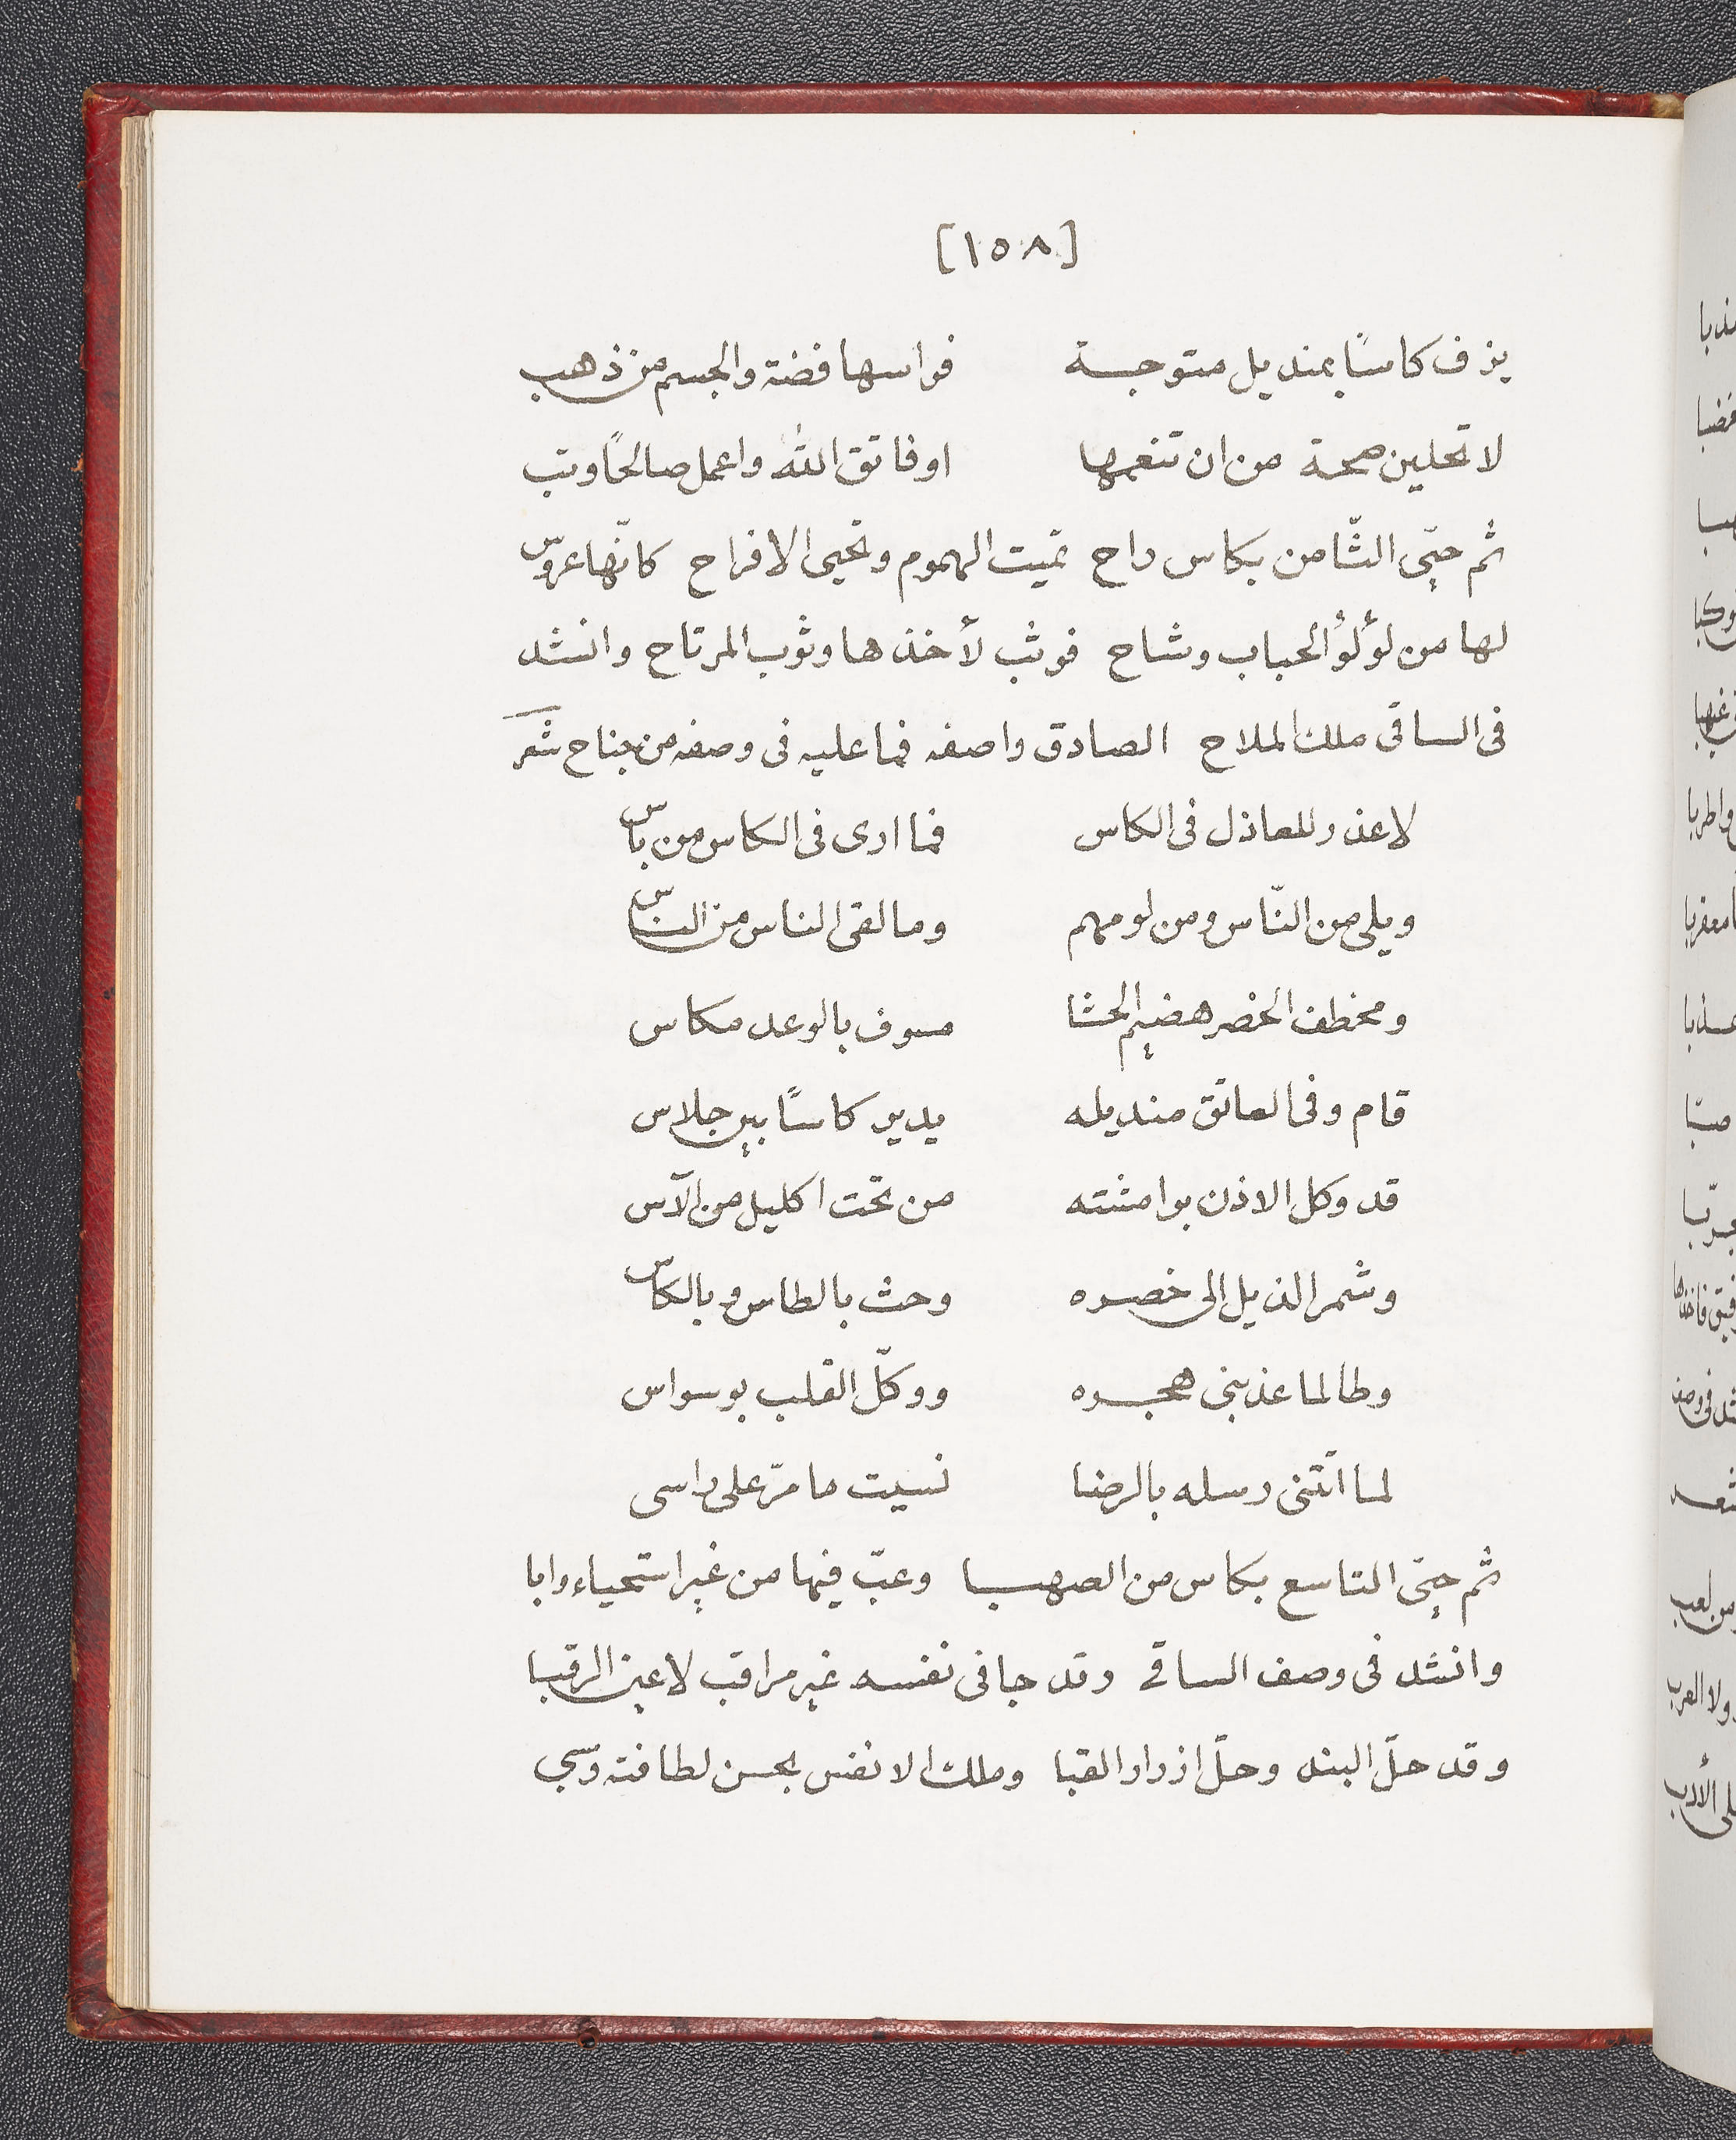 [١٥٨]
يزف كاسًا بمنديل متوجة فراسها فضة والجسم من ذهب
لا تخلين صحة من ان تنعمها اوفاتق الله واعمل صالحًا وتب
ثم حيّى الثّامن بكاس راح تميت الهموم وتحيى الافراح كانّها عروس
لها من لؤلؤ الحباب وشاح فوثب لأخذها وثوب المرتاح وانشد
فى الساقى ملك الملاح الصادق واصفه فما عليه فى وصفه من جناح شعر
لاعذر للعاذل فى الكاس فما ارى فى الكاس من باس
ويلى من النّاس ومن لومهم وما لقى الناس من الناس
ومخطف الخضر هضيم الحشا مسوف بالوعد مكاس
قام وفى العاتق منديله يدير كاسًا بين جلاس
قد وكل الاذن بوامشته من تحت اكليل من الآس
وشمر الذيل الى خصره وحث بالطاس وبالكاس
وطالما عذبنى هجره ووكّل القلب بوسواس
لما اتتنى رسله بالرضا نسيت ما مرّ على راسى
ثم حيّى التاسع بكاس من الصهبا وعبّ فيها من غير استحياء وابا
وانشد فى وصف الساقى وقد جا فى نفسه غير مراقب لاعين الرقبا
وقد حلّ البند وحلّ ازرار القبا وملك الانفس بحسن لطافته وسبى